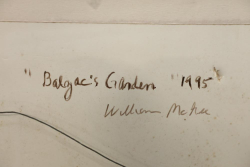 "Balzac's Garden" "1995"
William McKee